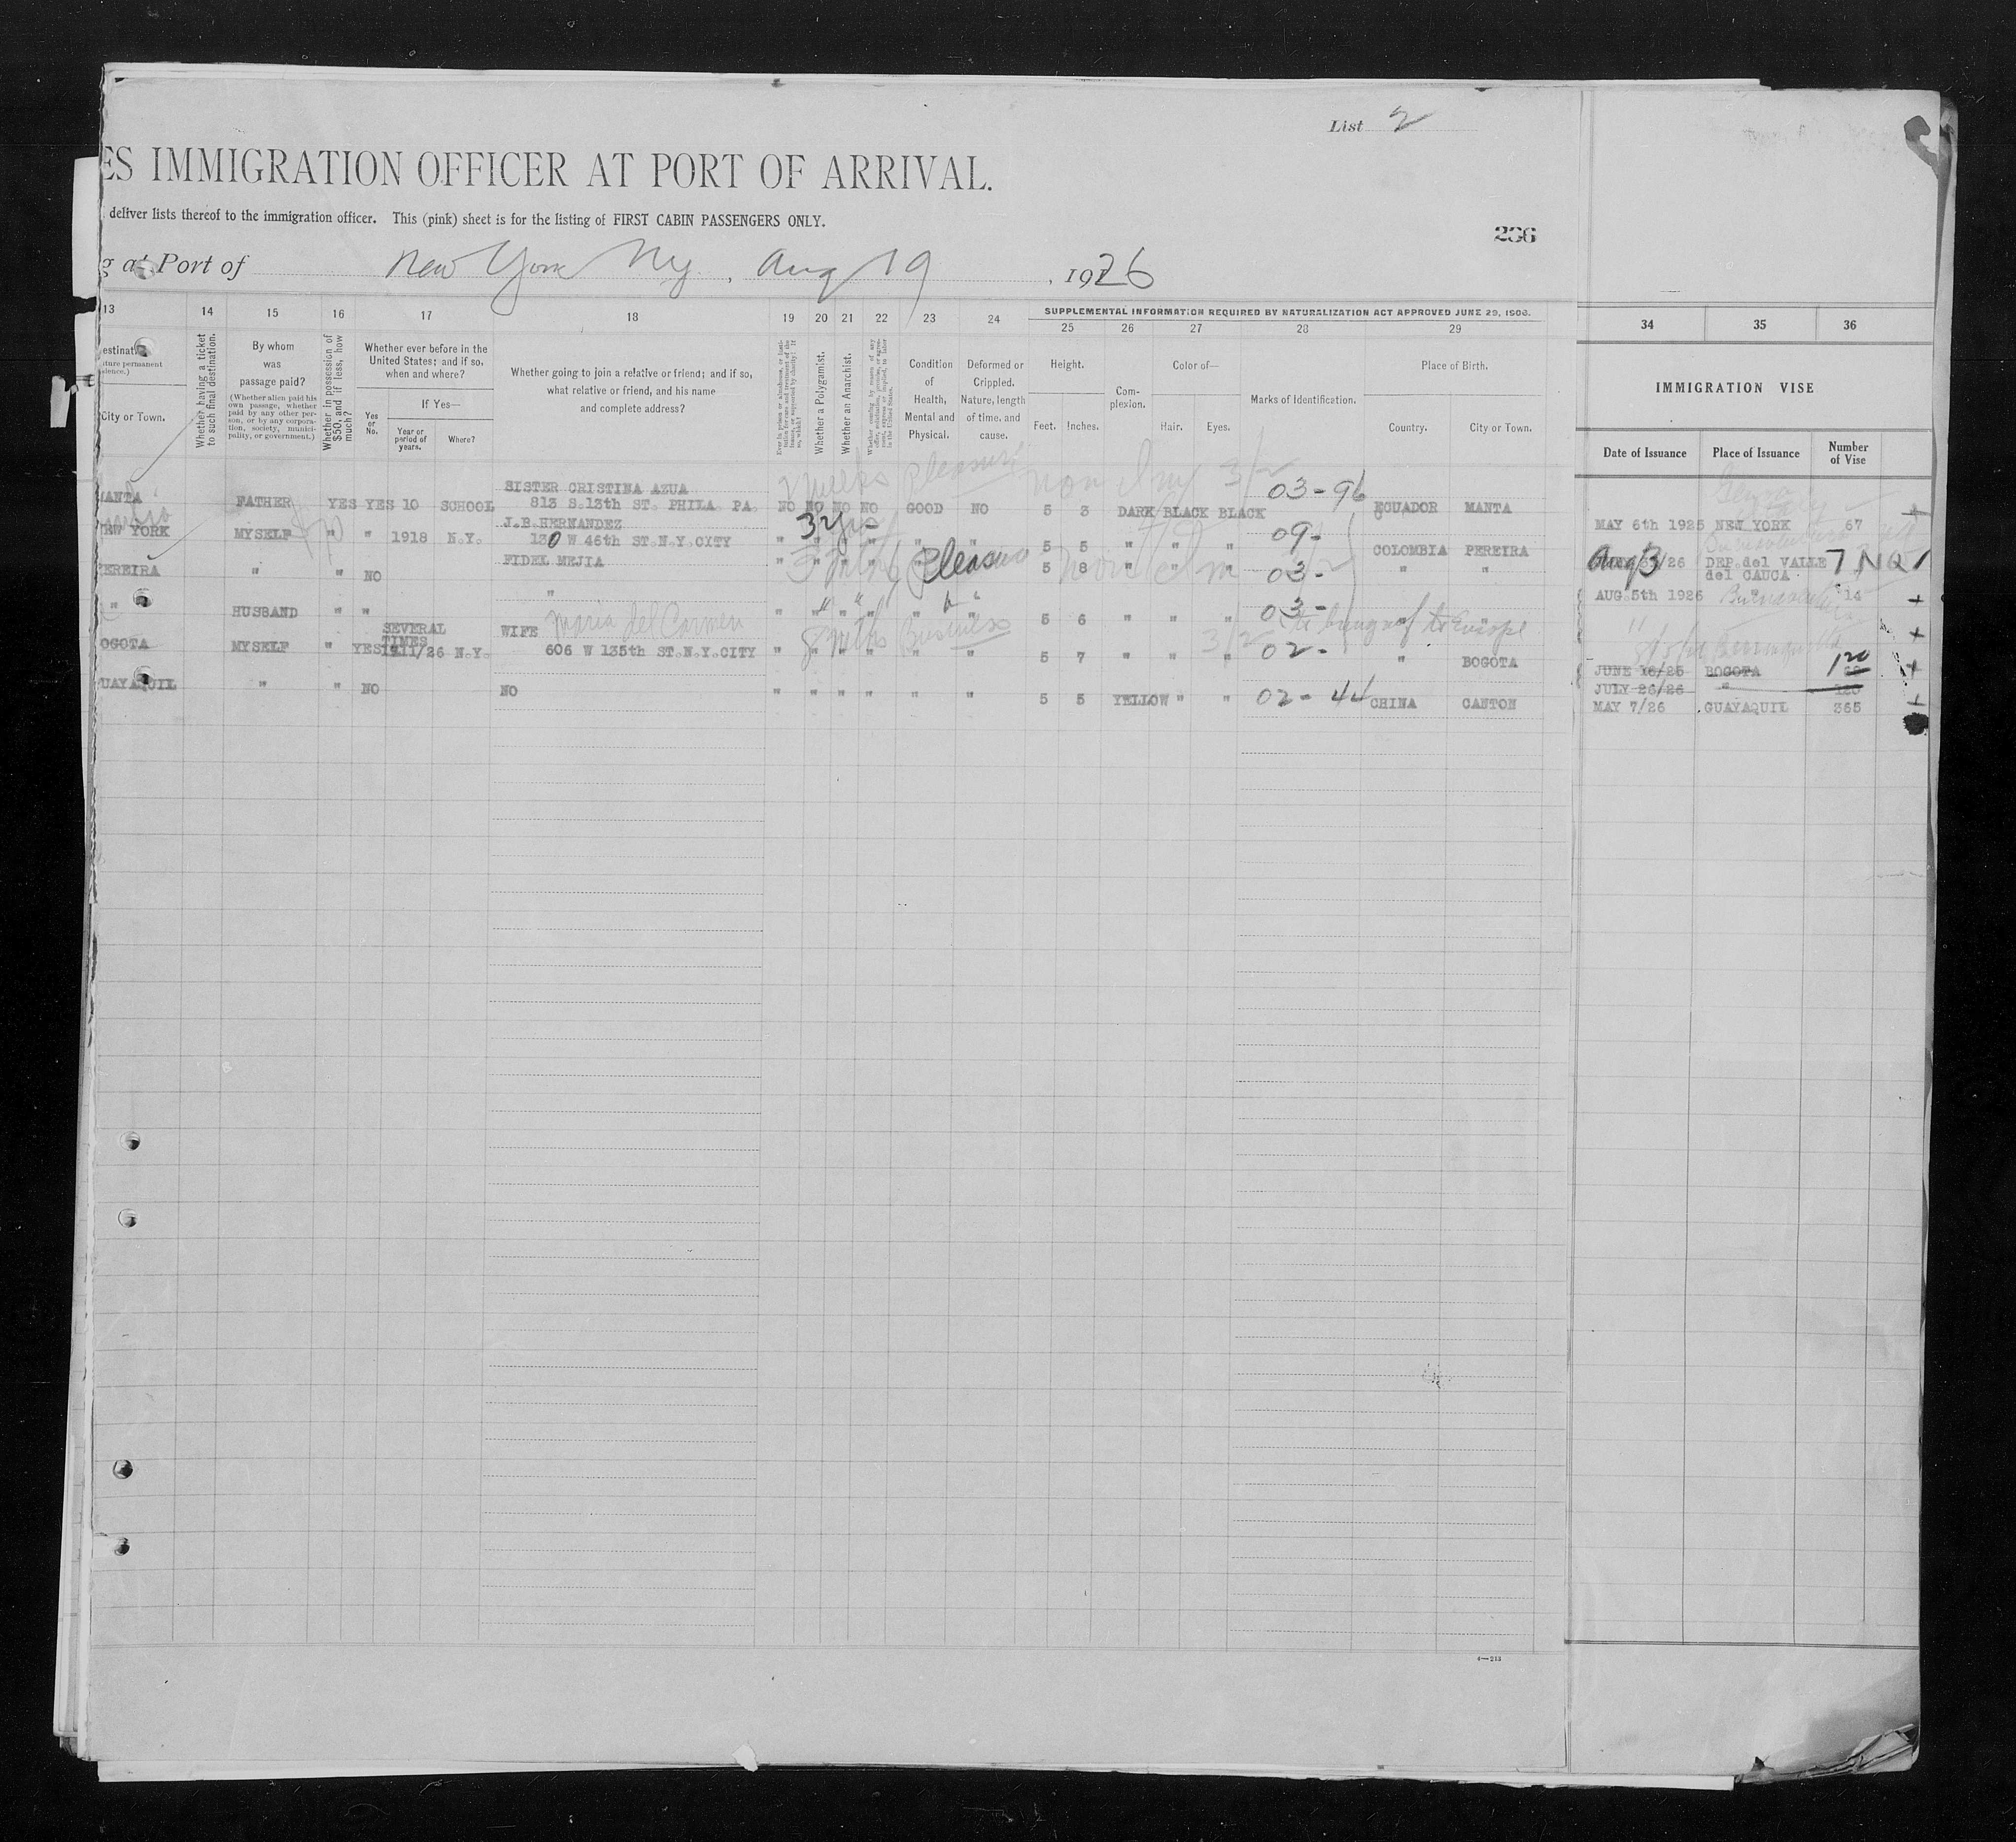 List 2
ES IMMIGRATION OFFICER AT PORT OF ARRIVAL.
deliver lists thereof to the immigration officer. This (pink) sheet is for the listing of FIRST CABIN PASSENGERS ONLY.
236
g at Port of New York Ny, Aug 19, 1926
13 14 15 16 17 18 19 20 21 22 23 24
SUPPLEMENTAL INFORMATION REQUIRED BY NATURALIZATION ACT APPROVED JUNE 29, 1906.
25 26 27 28 29
34 35 36
City or Town.
Whether having a ticket to such final destination.
By whom was passage paid?
(Whether alien paid his own passage, whether paid by any other person, or by any corporation, society, municipality, or government.)
Whether in possession of $50, and if less, how much?
Whether ever before in the United States; and if so, when and where?
Yes or No.
If Yes—
Year or period of years.
Where?
Whether going to join a relative or friend; and if so, what relative or friend, and his name and complete address?
Whether a Polygamist.
Whether an Anarchist.
Condition of Health, Mental and Physical.
Deformed or Crippled. Nature, length of time, and cause.
Height.
Feet. Inches.
Complexion.
Color of—
Hair. Eyes.
Marks of Identification.
Place of Birth.
Country. City or Town.
IMMIGRATION VISE
Date of Issuance Place of Issuance Number of Vise
SISTER CRISTINA AZUA
ANTA FATHER YES YES 10 SCHOOL 813 S.13th ST. PHILA. PA. NO NO NO NO GOOD NO 5 3 DARK BLACK BLACK 03-96 ECUADOR MANTA
Pleasure
J.B.HERNANDEZ
EW YORK MYSELF " " 1918 N.Y. 130 W 46th ST.N.Y.CITY " " " " " " 5 5 " " " 09- COLOMBIA PEREIRA
3 yrs
MAY 6th 1925 NEW YORK 67
FIDEL MEJIA
EREIRA " " NO " " " " " " 5 8 " " " 03- " "
Pleasure
Aug 3 /26 DEP.del VALLE del CAUCA 7 NQ
" HUSBAND " " " " " " " " " 5 6 " " " 03-
AUG.5th 1926 " 14
OGOTA MYSELF " YES SEVERAL TIMES 1911/26 N.Y. WIFE Maria del Carmen
606 W 135th ST.N.Y.CITY " " " " " " 5 7 " " " 02- " BOGOTA
Business
JUNE 16/25 BOGOTA 120
JULY 26/26 " 120
UAYAQUIL " " NO NO " " " " " " 5 5 YELLOW " " 02-44 CHINA CANTON
MAY 7/26 GUAYAQUIL 365
4—213